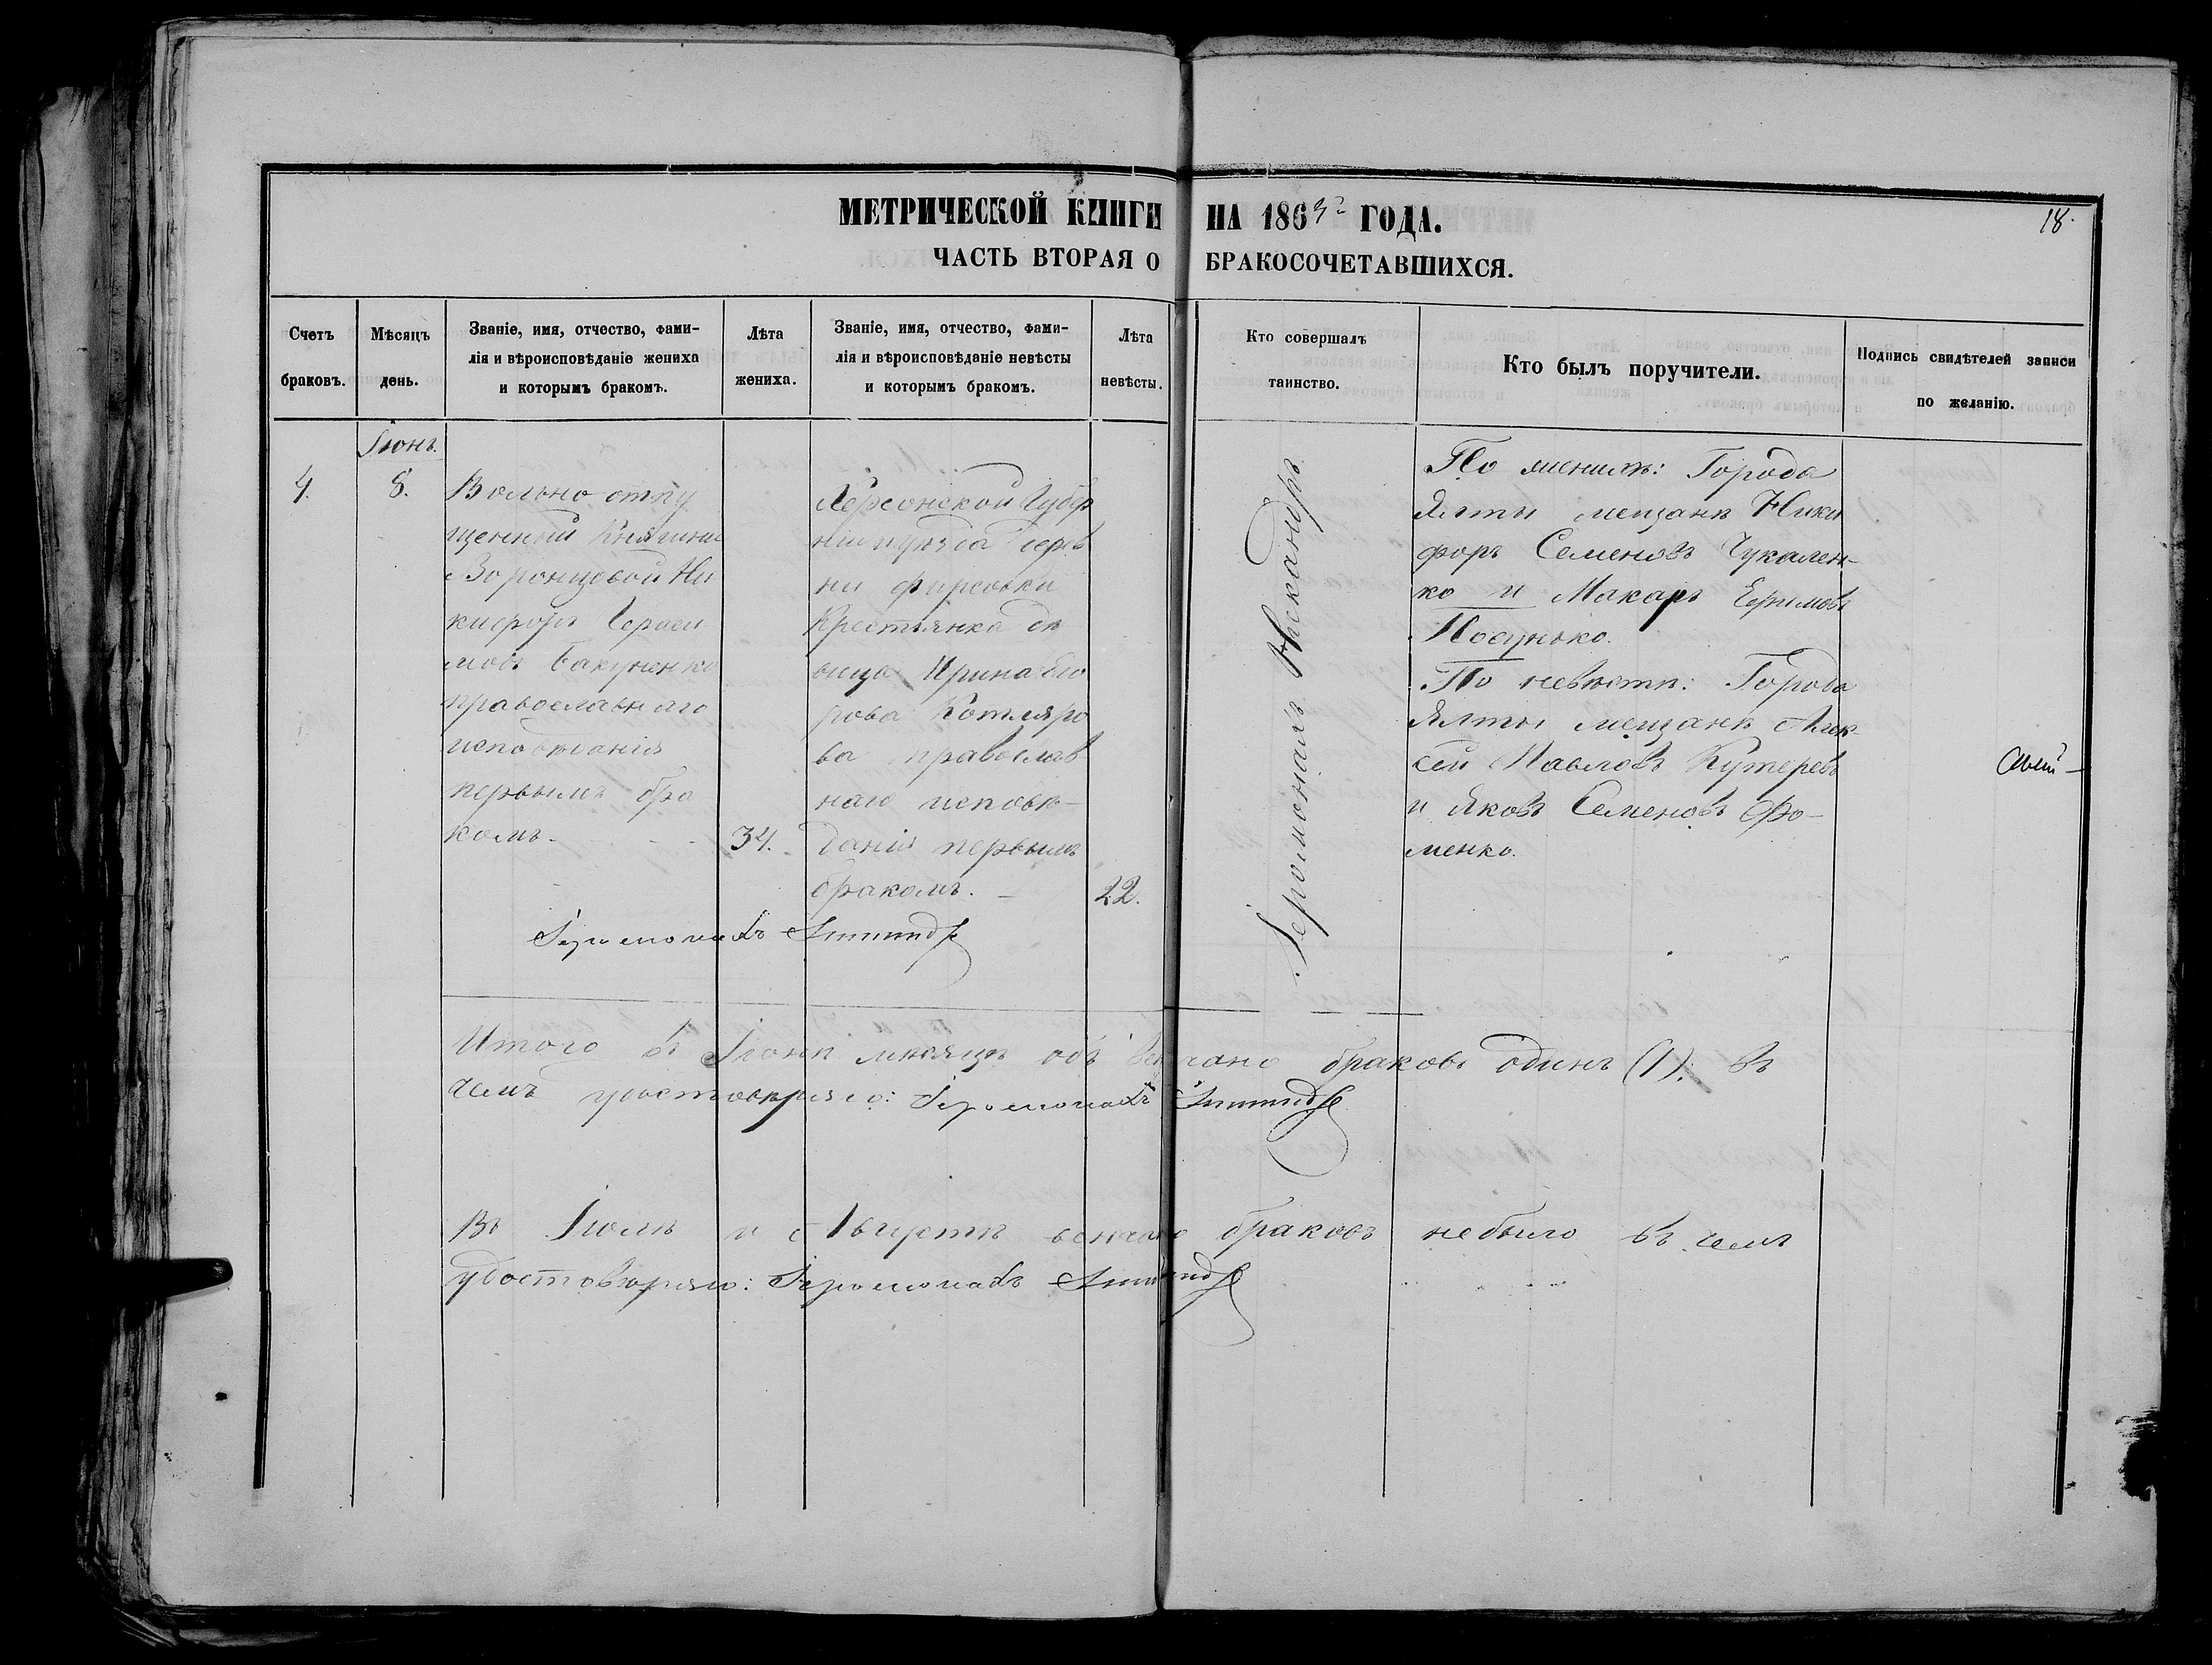 МЕТРИЧЕСКОЙ КНИГИ НА 1863го ГОДА.
18.
ЧАСТЬ ВТОРАЯ О БРАКОСОЧЕТАВШИХСЯ.
Счетъ браковъ.
Мѣсяцъ день.
Званіе, имя, отчество, фами-
лія и вѣроисповѣданіе жениха
и которымъ бракомъ.
Лѣта жениха.
Званіе, имя, отчество, фами-
лія и вѣроисповѣданіе невѣсты
и которымъ бракомъ.
Лѣта невѣсты.
Кто совершалъ
таинство.
Кто былъ поручители.
Подпись свидѣтелей записи
по желанію.
4.
Іюнь.
8.
Вольно отпу
щенный Княгини
Воронцовой Ни
кифоръ Гераси
мовъ Бакуненко
православнаго
исповѣданія
первымъ бра
комъ.
34.
Херсонской Губер
ніи уѣзда дерев
ни Фирсовки
Крестьянка дѣ
вица Ирина
рова Котляро
ва православ
наго исповѣ-
данія первымъ
бракомъ.
22.
Іеромонахъ Никандръ
По женихѣ: Города
Ялты мещанъ Ники
форъ Семеновъ Чукален-
ко и Макаръ Ефимовъ
По невѣстѣ: Города
Ялты мещанъ Алек-
сѣй Павловъ Кутеревъ
и Яковъ Семеновъ Фо-
менко.
Іеромонахъ
Итого въ Іюнѣ мѣсяцѣ обвѣнчано браковъ одинъ (1): въ
чемъ удостовѣряю: Іеромонахъ
Въ Іюлѣ и Августѣ вѣнчано браковъ небыло въ чемъ
удостовѣряю: Іеромонахъ